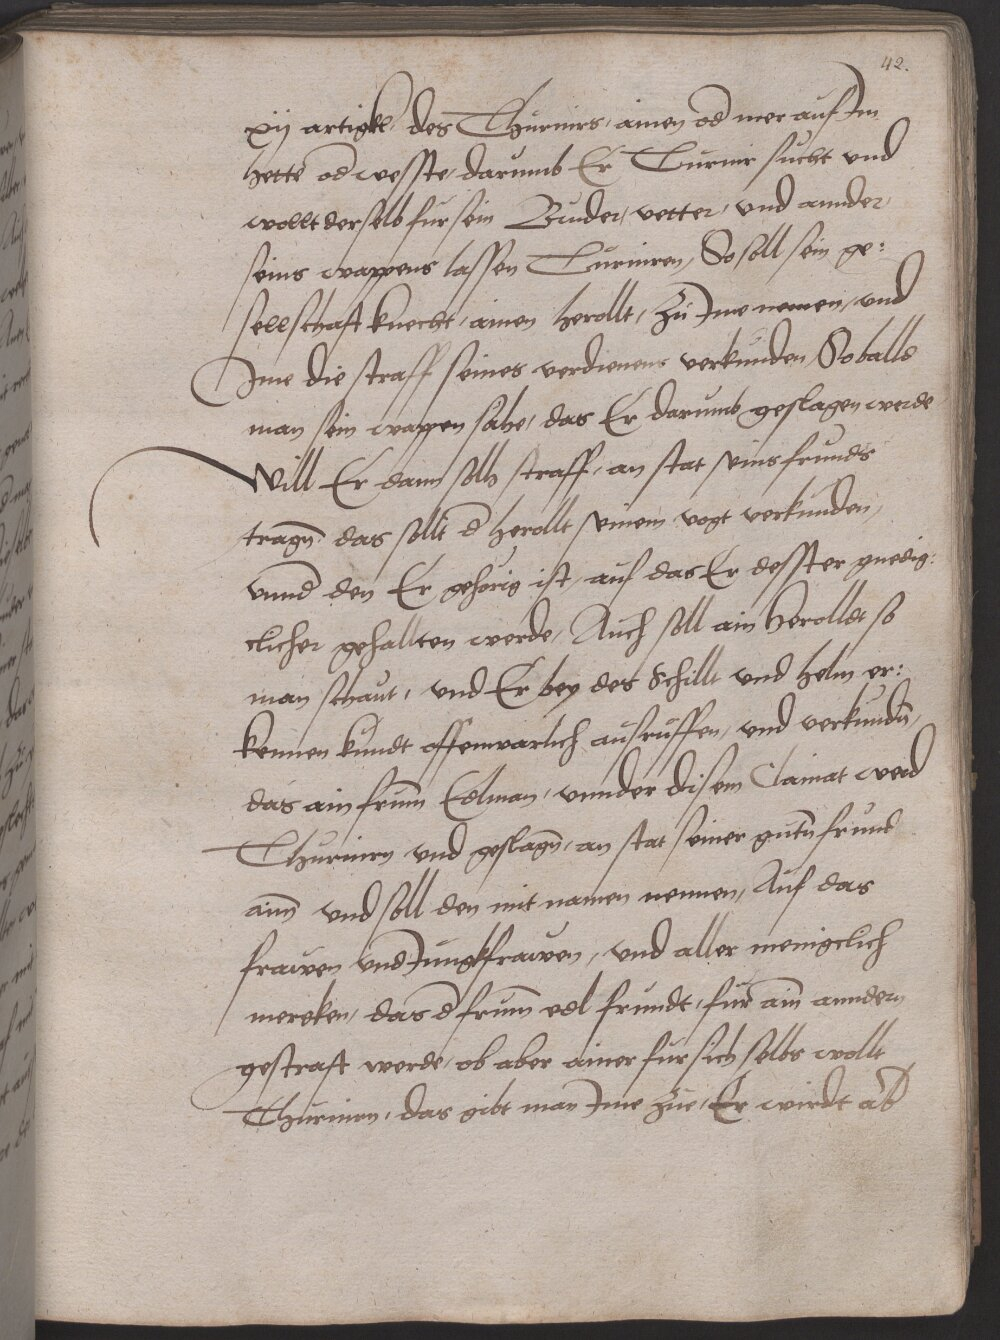 42.
xij artigkl, des Thurnirs, ainen od mer auf Im
hette od wesste, darumb Er Turnir sucht vnd
wollt derselb fur sein Bruder, vetter, vnd annder
seins wappens lassen Turniren, So soll sein ge:
sellschaft knecht, ainen herollt, zu Ime nemen, vnd
Ime die straff seines verdienens verkunden, So balld
man sein wappen sahe, das Er darumb geslagen werde
Will Er dann sollh straff, an stat seins frunds
tragn̄ das sollt d herollt seinem vogt verkunden,
vnnd den Er gehorig ist, auf das Er desster gnedig:
clicher gehallten werde, Auch soll ain herolldt so
man schaut, vnd Er bey des Schillt vnd helm er:
kennen kundt offennwarlich ausruffen, vnd verkundn̄,
das ain frum̄ Edlman, vnnder disem Clainat werd
Thurnirn vnd geslagn̄, an stat seiner gutn̄ frund
ain̄ vnd soll den mit namen nennen, Auf das
frawen vnd Jungkfrawen, vnd aller menigclich
mercken, das d frum̄ edl frundt, fur ain̄ anndern
gestraft werde, ob aber ainer fur sich selbs wollt
Thurnirn, das gibt man Ime zue, Er wirdt ab